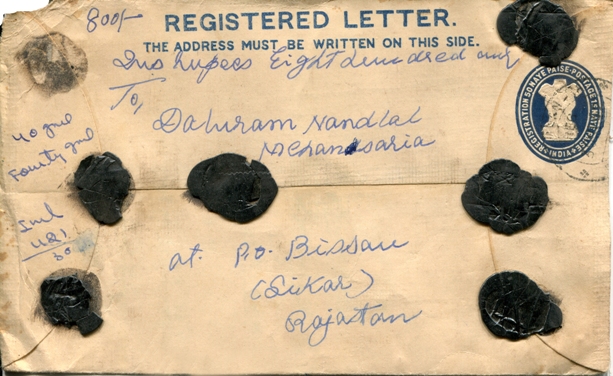 800/-
REGISTERED LETTER.
THE ADDRESS MUST BE WRITTEN ON THIS SIDE.
Ins rupees Eight Hundred only
To,
Daluram Nandlal
40 gml
Fourty gml
at. P.O. Bissau
(Sikar)
Rajastan
REGISTRATION 50 NAYE PAISE · POSTAGE 15 NAYE PAISE
INDIA